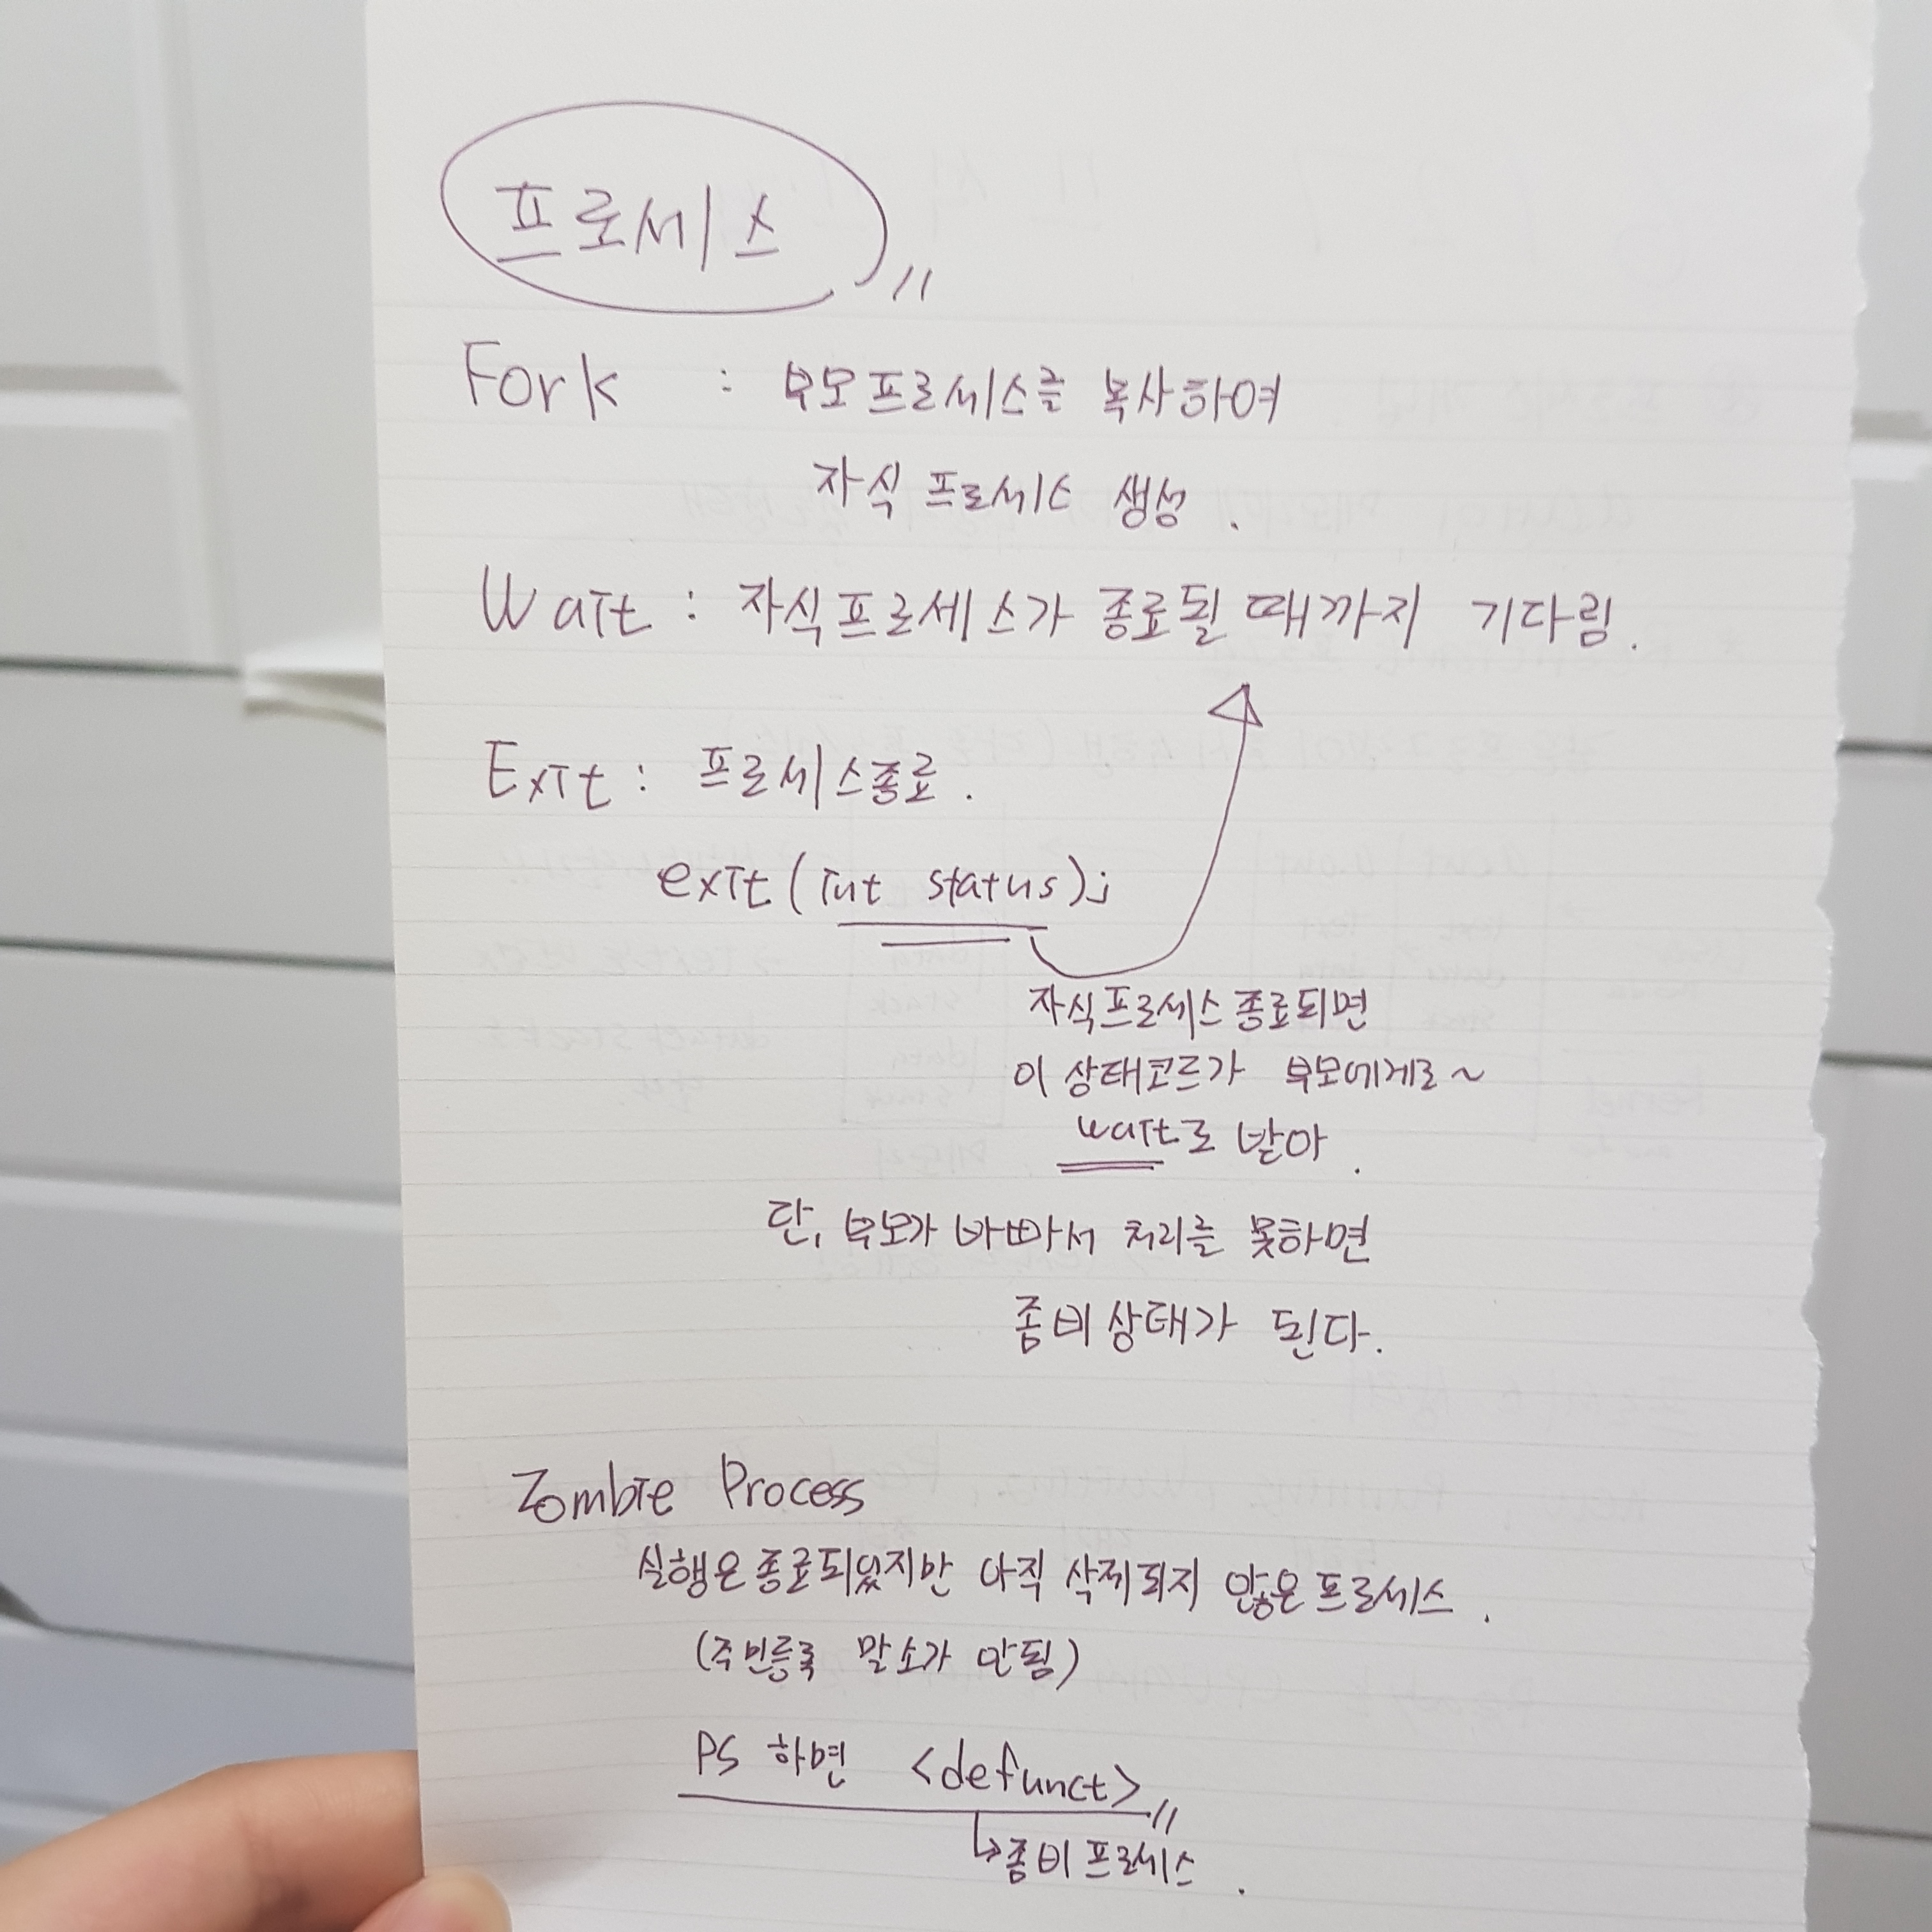 프로세스
Fork : 부모프로세스를 복사하여
자식 프로세스 생성.
Wait : 자식프로세스가 종료될 때까지 기다림.
Exit : 프로세스종료.
exit(int status);
자식프로세스 종료되면
이 상태코드가 부모에게로~
wait로 받아.
단, 부모가 바빠서 처리를 못하면
좀비상태가 된다.
Zombie Process
실행은 종료되었지만 아직 삭제되지 않은 프로세스.
(주민등록 말소가 안됨)
PS 하면 <defunct>
↳좀비프로세스.